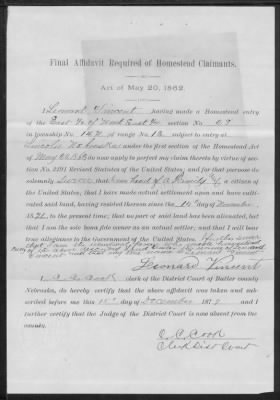 Final Affidavit Required of Homestead Claimants.
Act of May 20, 1862.
I, Leonard Vincent having made a Homestead entry
of the East ½ of North East ¼ section No.
in township No. 14 N of range No. 1 E subject to entry at
Lincoln Nebraska under the first section of the Homestead Act
of May 20 1862 do now apply to perfect my claim thereto by virtue of sec-
tion No. 2291 Revised Statutes of the United States; and for that purpose do
solemnly Swear that I am head of a Family & a citizen of
the United States; that I have made actual settlement upon and have culti-
vated said land, having resided thereon since the 14 day of November
1871, to the present time; that no part of said land has been alienated, but
that I am the sole bona fide owner as an actual settler; and that I will bear
true allegiance to the Government of the United States.
Leonard Vincent
I, C. C. Cook clerk of the District Court of Butler county
Nebraska, do hereby certify that the above affidavit was taken and sub-
scribed before me this day of December 187 and I
further certify that the Judge of the District Court is now absent from the
county.
C. C. Cook
Clerk Dist Court